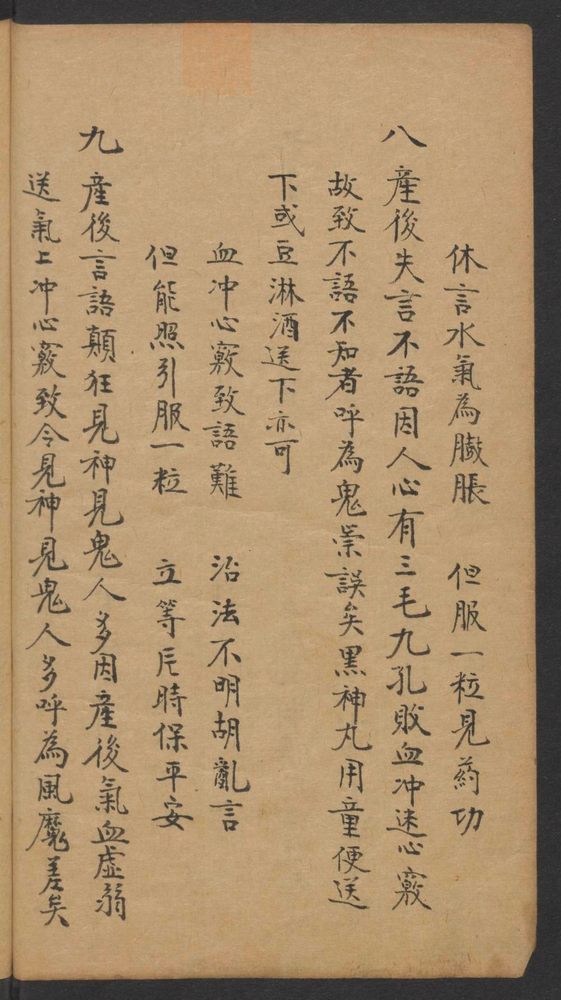 休言水氣為臌脹　但服一粒見葯功
八　産後失言不語因人心有三毛九孔敗血冲迷心竅
故致不語不知者呼為鬼祟誤矣黑神丸用童便送
下或豆淋酒送下亦可
血冲心竅致語難　治法不明胡亂言
但能照引服一粒　立等片時保平安
九　産後言語顛狂見神見鬼人多因産後氣血虛弱
送氣上冲心竅致令見神見鬼人多呼為風魔差矣